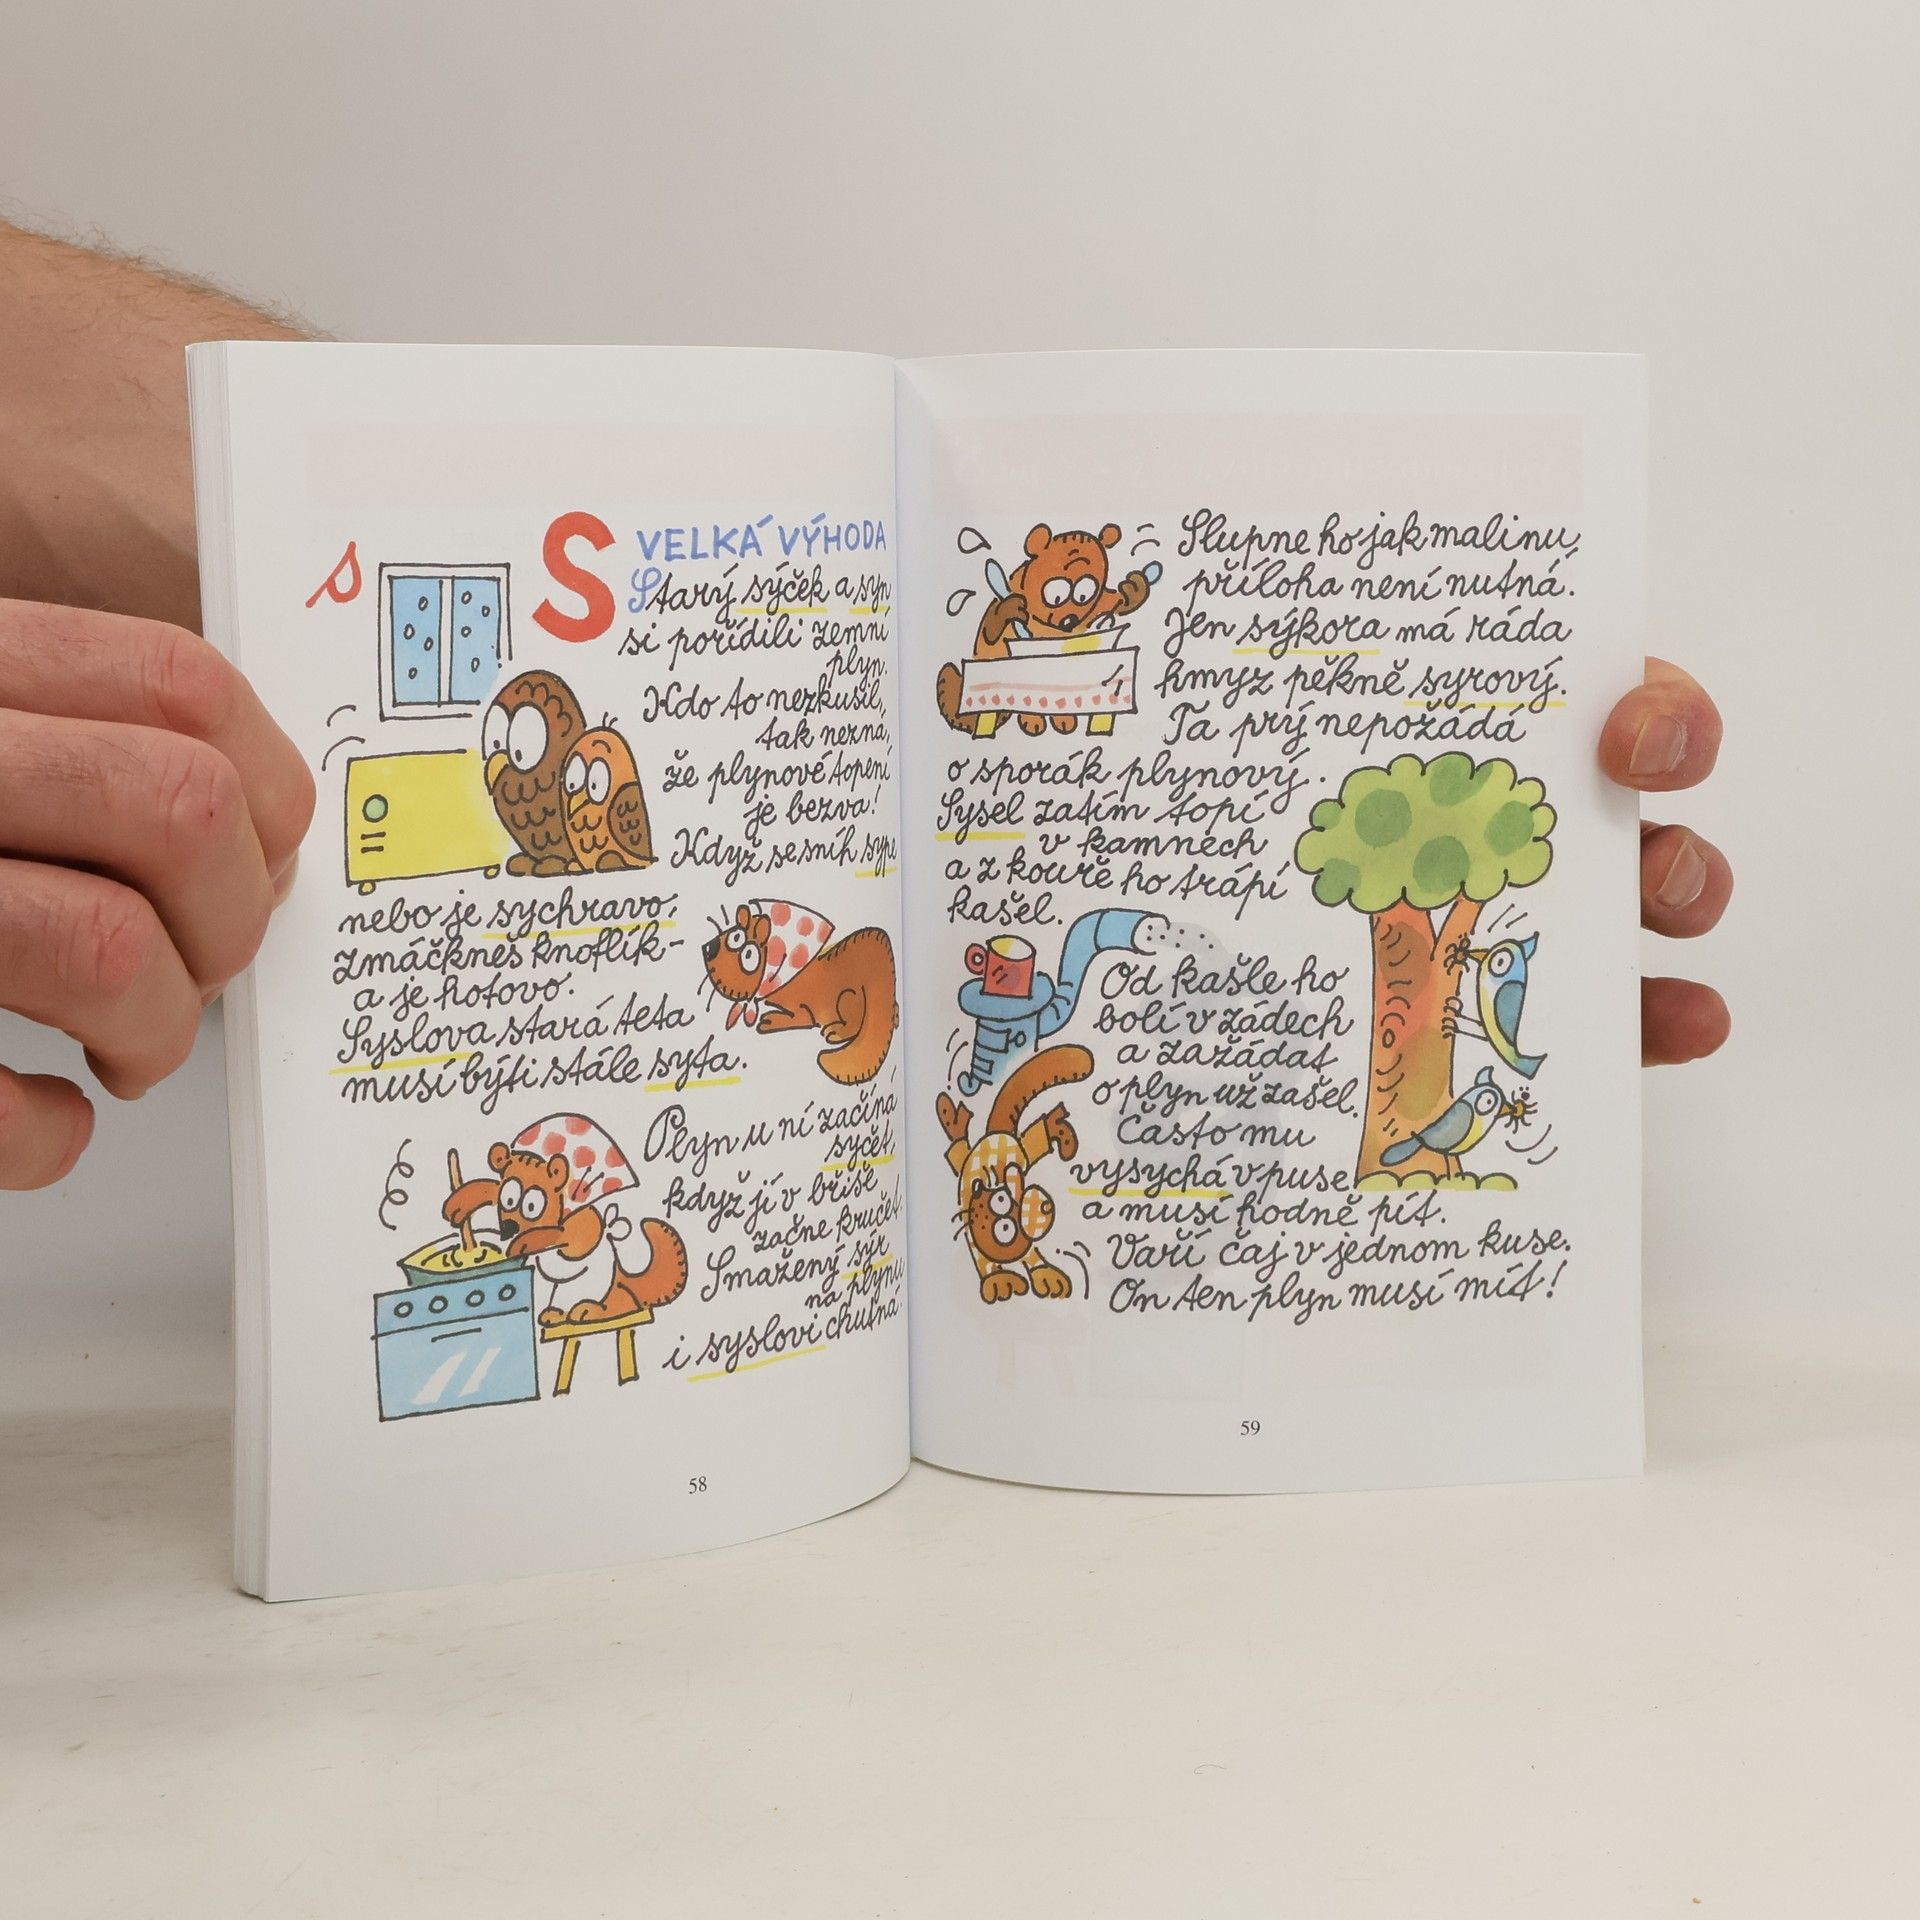 s
S
VELKÁ VÝHODA
Starý sýček a syn
si pořídili zemní
plyn.
Kdo to nezkusil,
tak nezná,
že plynové topení
je bezva!
Když se sníh sype
nebo je sychravo,
zmáčkneš knoflík-
a je hotovo.
Syslova stará teta
musí býti stále syta.
Plyn u ní začíná
syčet,
když jí v břiše
začne kručet.
Smažený sýr
na plynu
i syslovi chutná.
58
Slupne ho jak malinu,
příloha není nutná.
Jen sýkora má ráda
hmyz pěkně syrový.
Ta prý nepožádá
o sporák plynový.
Sysel zatím topí
v kamnech
a z kouře ho trápí
kašel.
Od kašle ho
bolí v zádech
a zažádat
o plyn už zašel.
Často mu
vysychá v puse
a musí hodně pít.
Vaří čaj v jednom kuse.
On ten plyn musí mít!
59